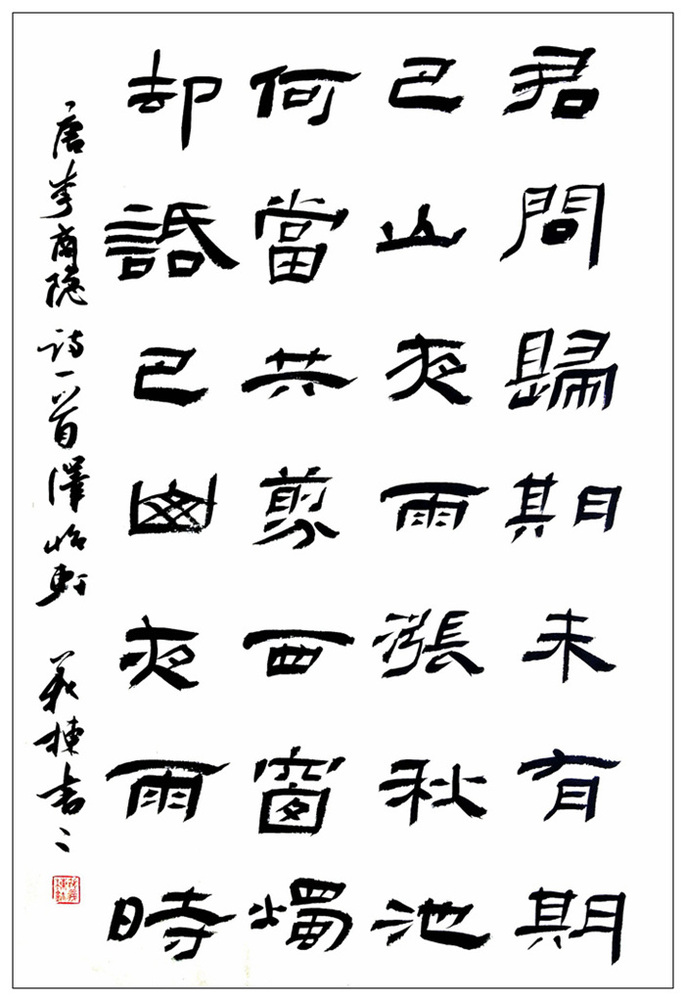 君問歸期未有期
巴山夜雨漲秋池
何當共剪西窗燭
却話巴山夜雨時
唐李商隐诗一首澤怡軒 義棟書之